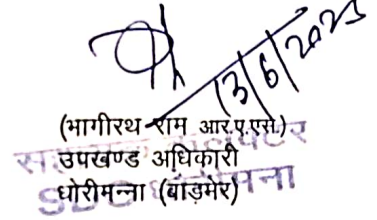 13/6/2025
(भागीरथ राम आर.ए.एस.)
उपखण्ड अधिकारी
धोरीमन्ना (बाड़मेर)